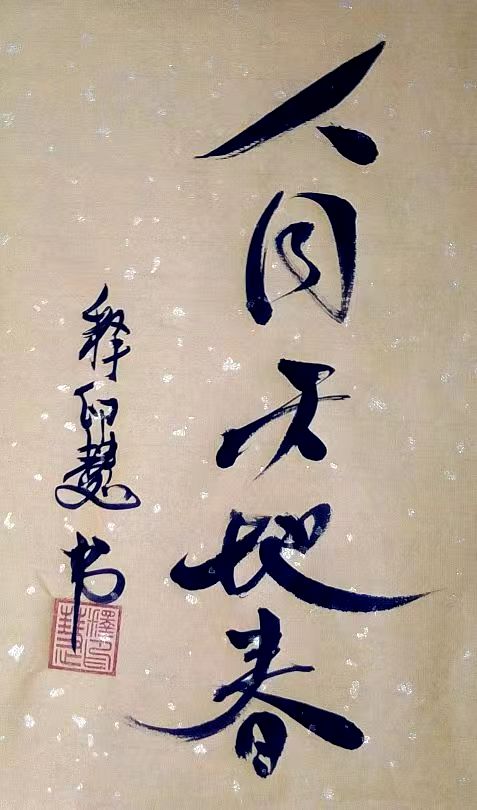 人同天地春
释印慧书